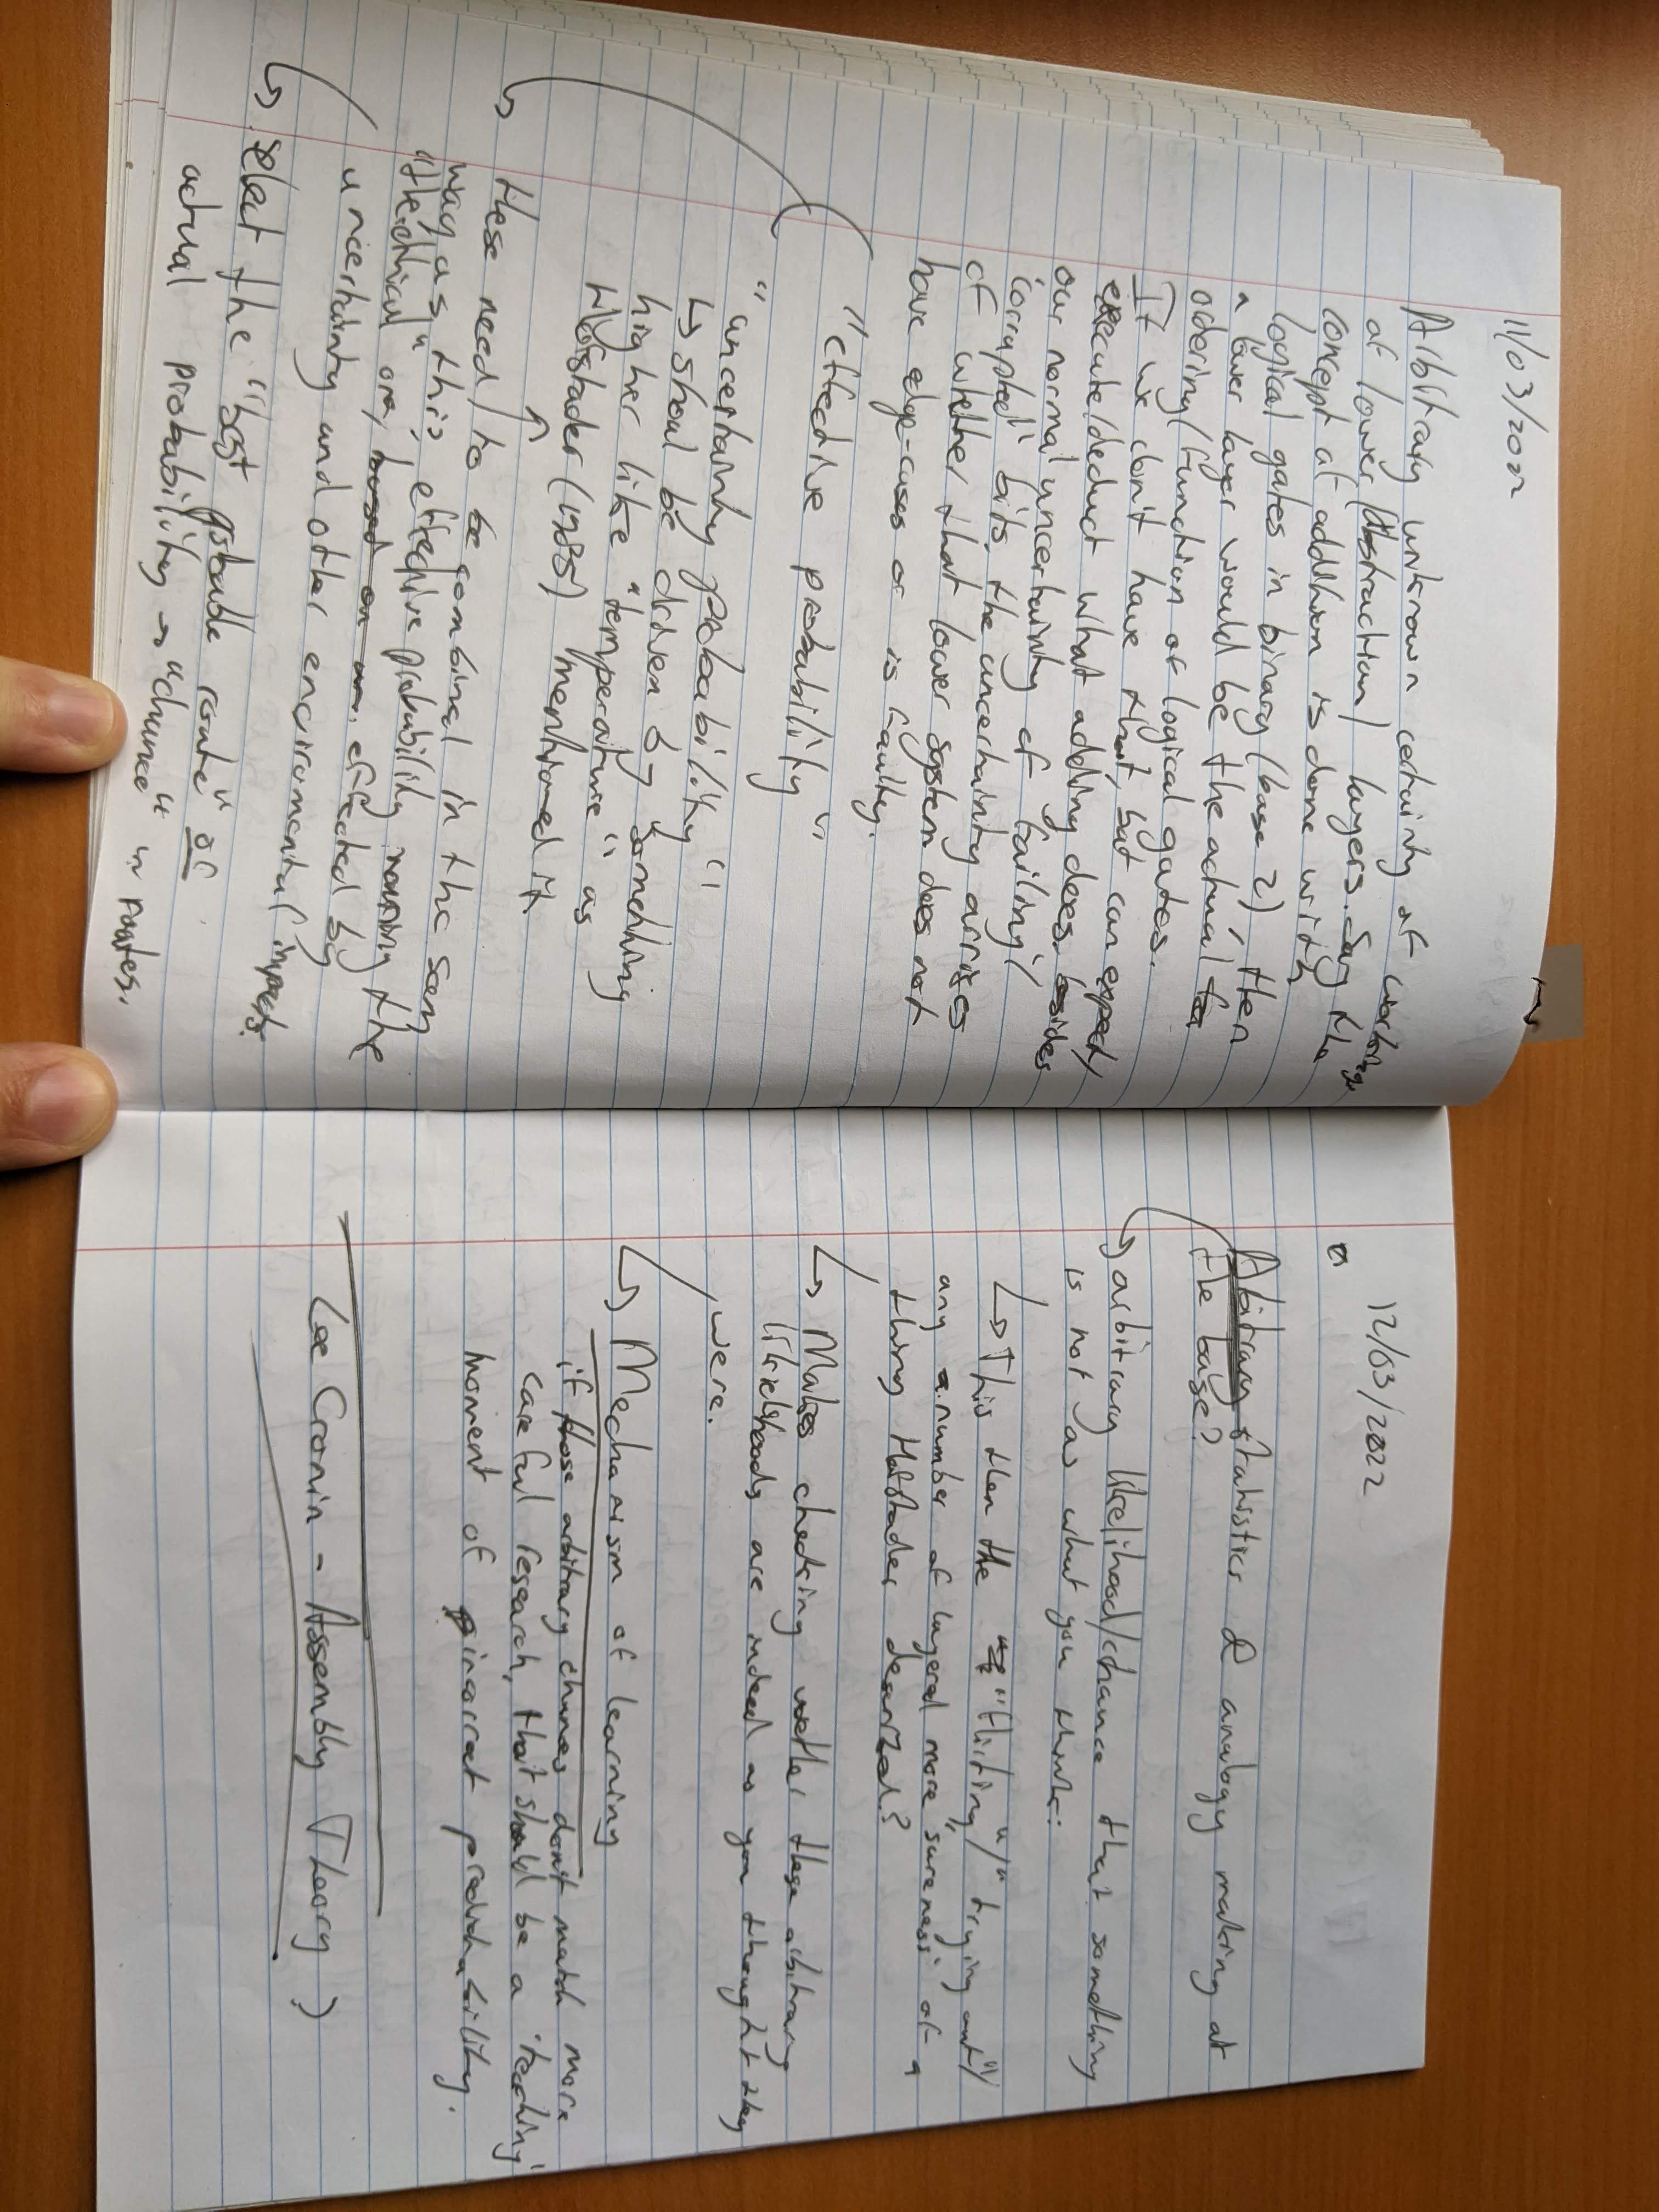 11/03/2022
Albitrary unknown certainty of workings
of lower (abstraction) layers. Say the
concept of addition is done with
logical gates in binary (base 2), then
a lower layer would be the actual
ordering/function of logical gates.
If we don't have that, but can expect/
execute/deduct what adding does, besides
our normal uncertainty of failing/
"corrupted" bits, the uncertainty arrises
of wether that lower system does not
have edge-cases or is faulty.
"effective probability"
"uncertainty probability"
↳ shoul be driven by something
higher like "temperature" as
Hofstader (1985) mentioned it
↳ these need to be combined in the same
way as this, effective probability
"the ethical" one, based on effected by
uncertainty and other enviromental impacts.
↳ select the "best probable route" or
actual probability → "chance" in routes.
12/03/2022
Abitrary statistics & analogy making at
the base?
↳ arbitrary likelihood/chance that something
is not as what you think:
↳ This then the "flirting"/"trying out"/
any a number of layered more "sureness" of a
thing Hofstader
↳ Makes checking wether these abitrary
likelihoods are indeed as you thought they
were.
↳ Mechanism of learning
if those arbitrary chances don't match more
careful research, that should be a 'teaching'
moment of incorrect predictability.
Lee Cronin - Assembly Theory)